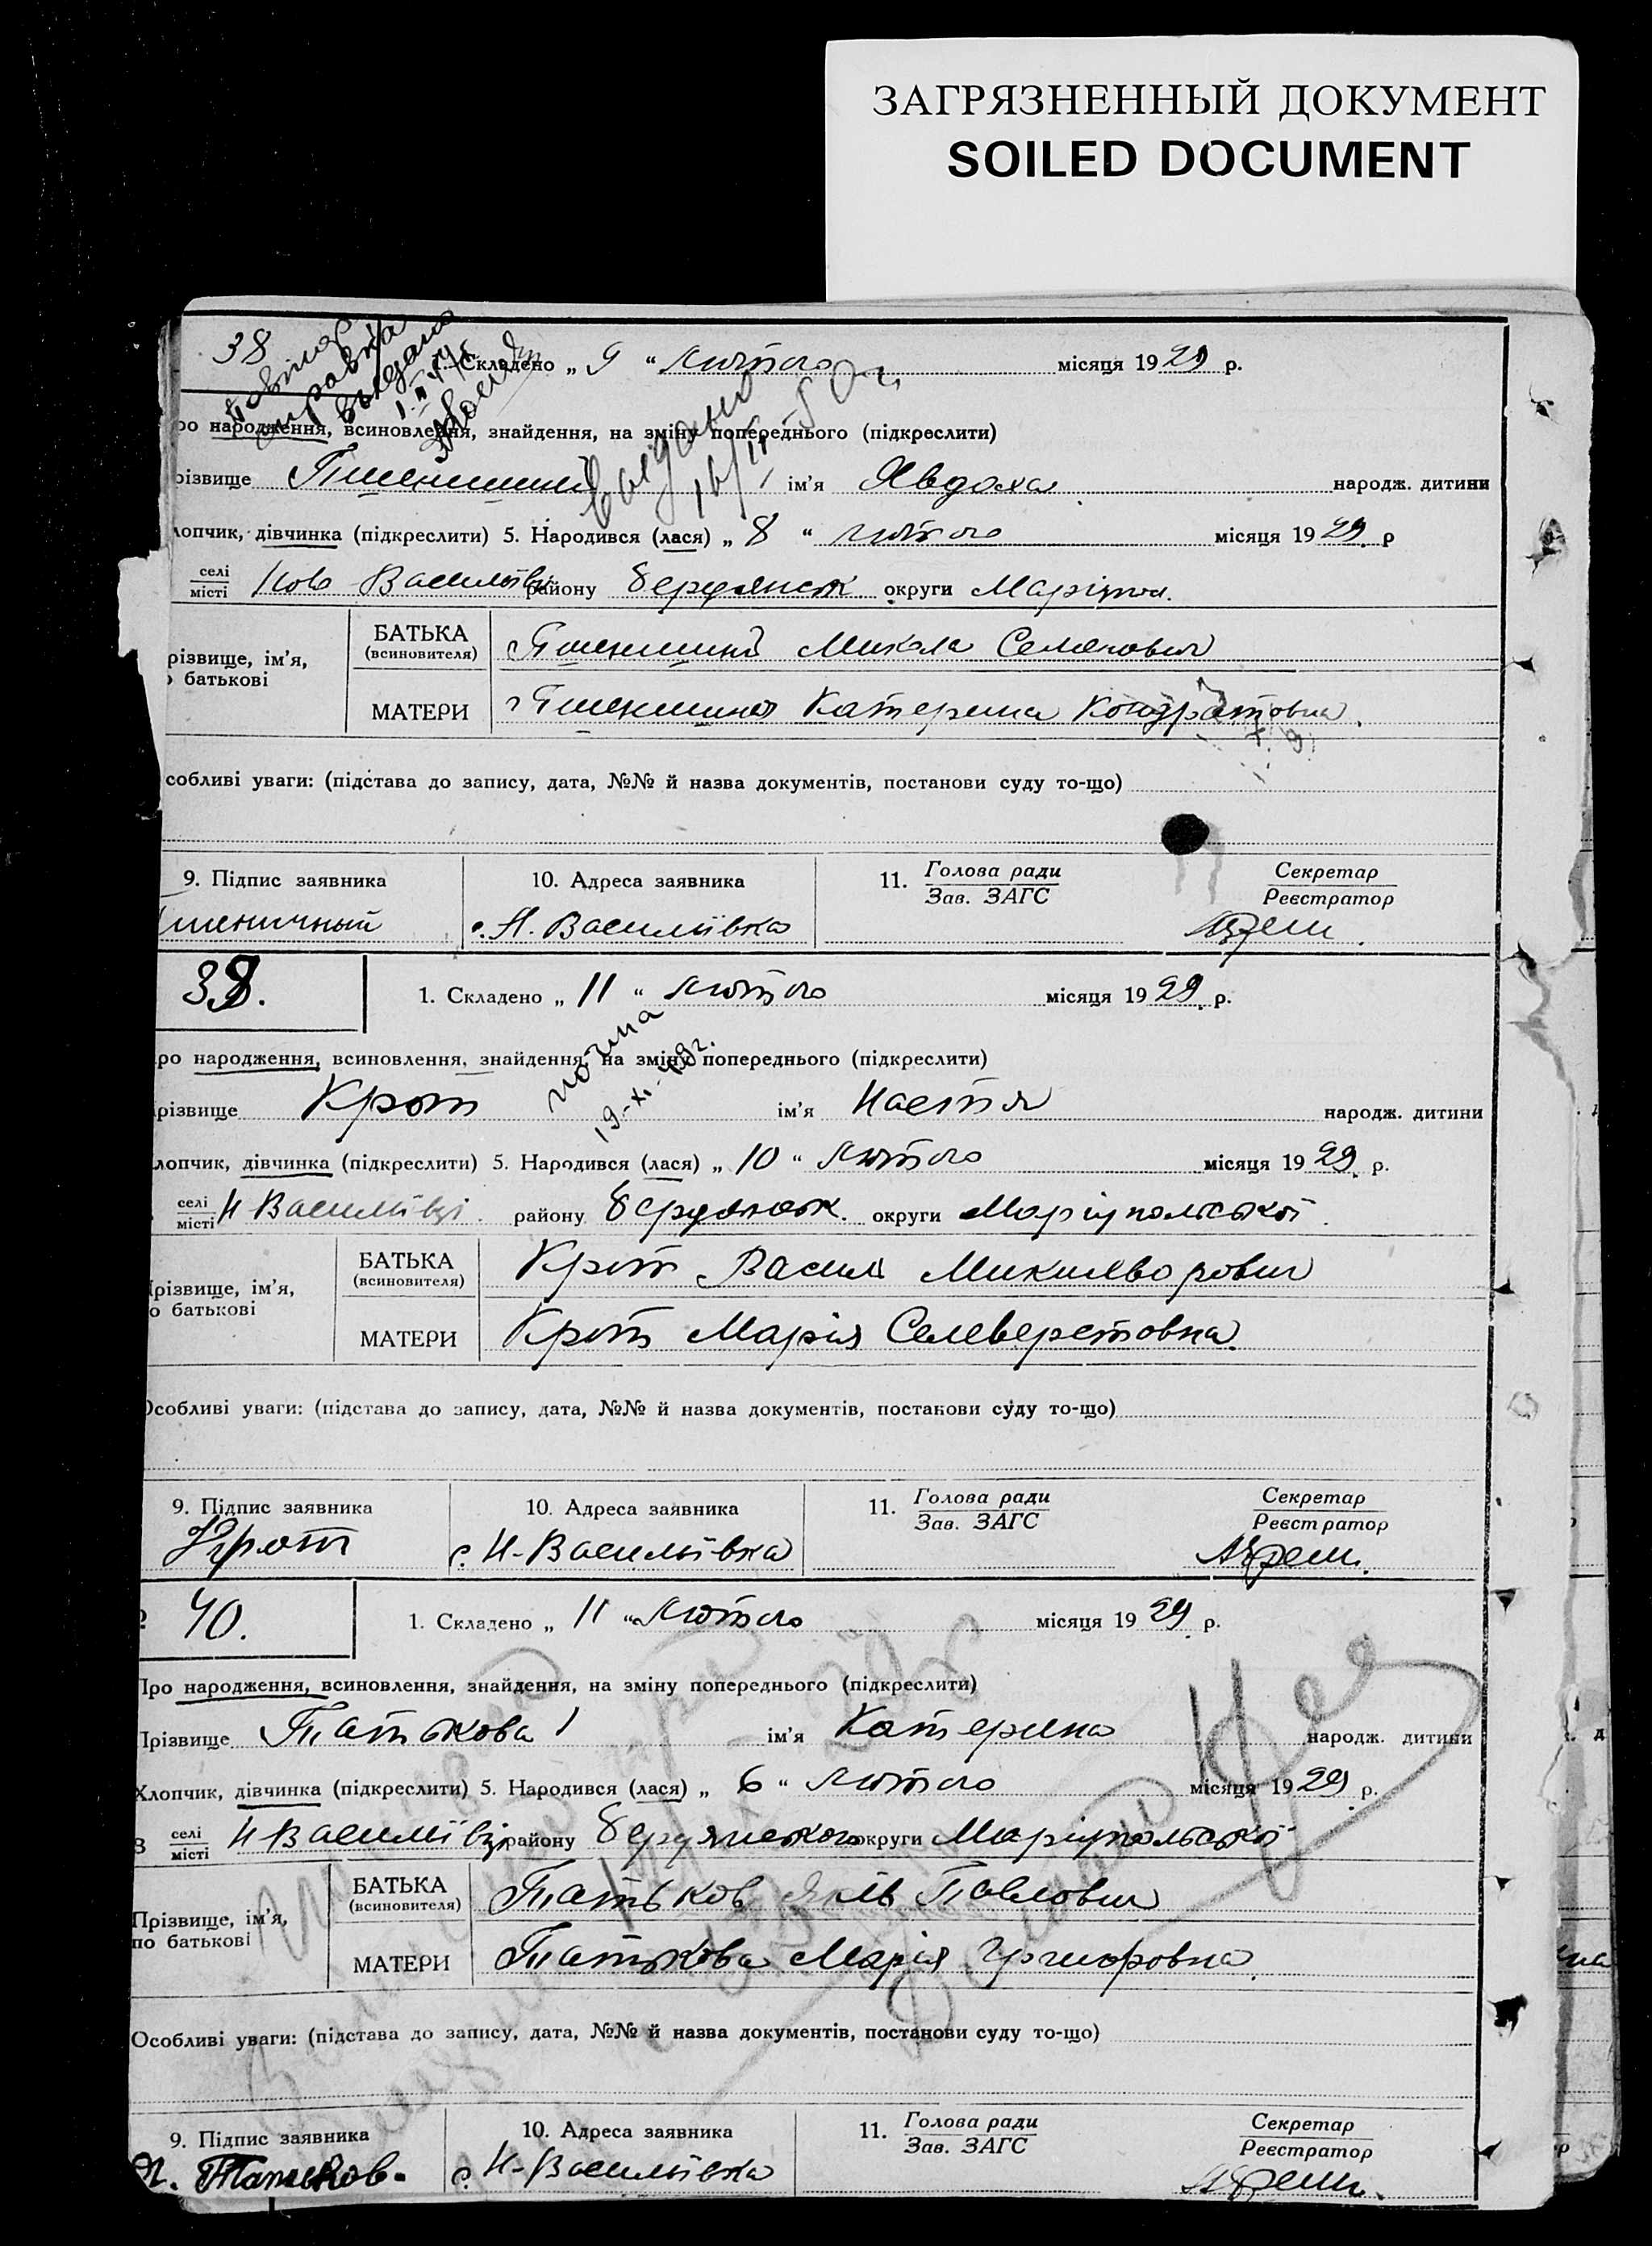 ЗАГРЯЗНЕННЫЙ ДОКУМЕНТ
SOILED DOCUMENT
38
Складено „ 9 “ лютого місяця 1929 р.
справка
ро народження, всиновлення, знайдення, на зміну попереднього (підкреслити)
різвище Пшенишний ім’я Явдоха народж. дитини
лопчик, дівчинка (підкреслити) 5. Народився (лася) „ 8 “ лютого місяця 1929 р
селі
місті Ново Василівці району Бердянськ округи Маріупол.
різвище, ім’я,
о батькові
БАТЬКА
(всиновителя) Пшенишний Микола Семенович
МАТЕРИ Пшенишна Катерина Кондратовна.
собливі уваги: (підстава до запису, дата, №№ й назва документів, постанови суду то-що)
9. Підпис заявника 10. Адреса заявника 11. Голова ради
Зав. ЗАГС Секретар
Реєстратор
шеничный с. Н. Василівка
39.
1. Складено „ 11 “ лютого місяця 1929 р.
ро народження, всиновлення, знайдення, на зміну попереднього (підкреслити)
19-XI-49г.
різвище Крот ім’я Настя народж. дитини
лопчик, дівчинка (підкреслити) 5. Народився (лася) „ 10 “ лютого місяця 1929 р.
селі
місті Н Василівці району Бердянськ. округи Маріупольської
різвище, ім’я,
о батькові
БАТЬКА
(всиновителя) Крот Василь
МАТЕРИ Крот Марія Селеверстовна.
Особливі уваги: (підстава до запису, дата, №№ й назва документів, постанови суду то-що)
9. Підпис заявника 10. Адреса заявника 11. Голова ради
Зав. ЗАГС Секретар
Реєстратор
Крот с. Н-Василівка
40.
1. Складено „ 11 “ лютого місяця 1929 р.
Про народження, всиновлення, знайдення, на зміну попереднього (підкреслити)
Прізвище Татькова ім’я Катерина народж. дитини
Хлопчик, дівчинка (підкреслити) 5. Народився (лася) „ 6 “ лютого місяця 1929 р.
В селі
місті Н-Василівці району Бердянського округи Маріупольської
Прізвище, ім’я,
по батькові
БАТЬКА
(всиновителя) Татьков Яків Павлович
МАТЕРИ Татькова Марія
Особливі уваги: (підстава до запису, дата, №№ й назва документів, постанови суду то-що)
9. Підпис заявника 10. Адреса заявника 11. Голова ради
Зав. ЗАГС Секретар
Реєстратор
Я. Татьков. с. Н-Василівка